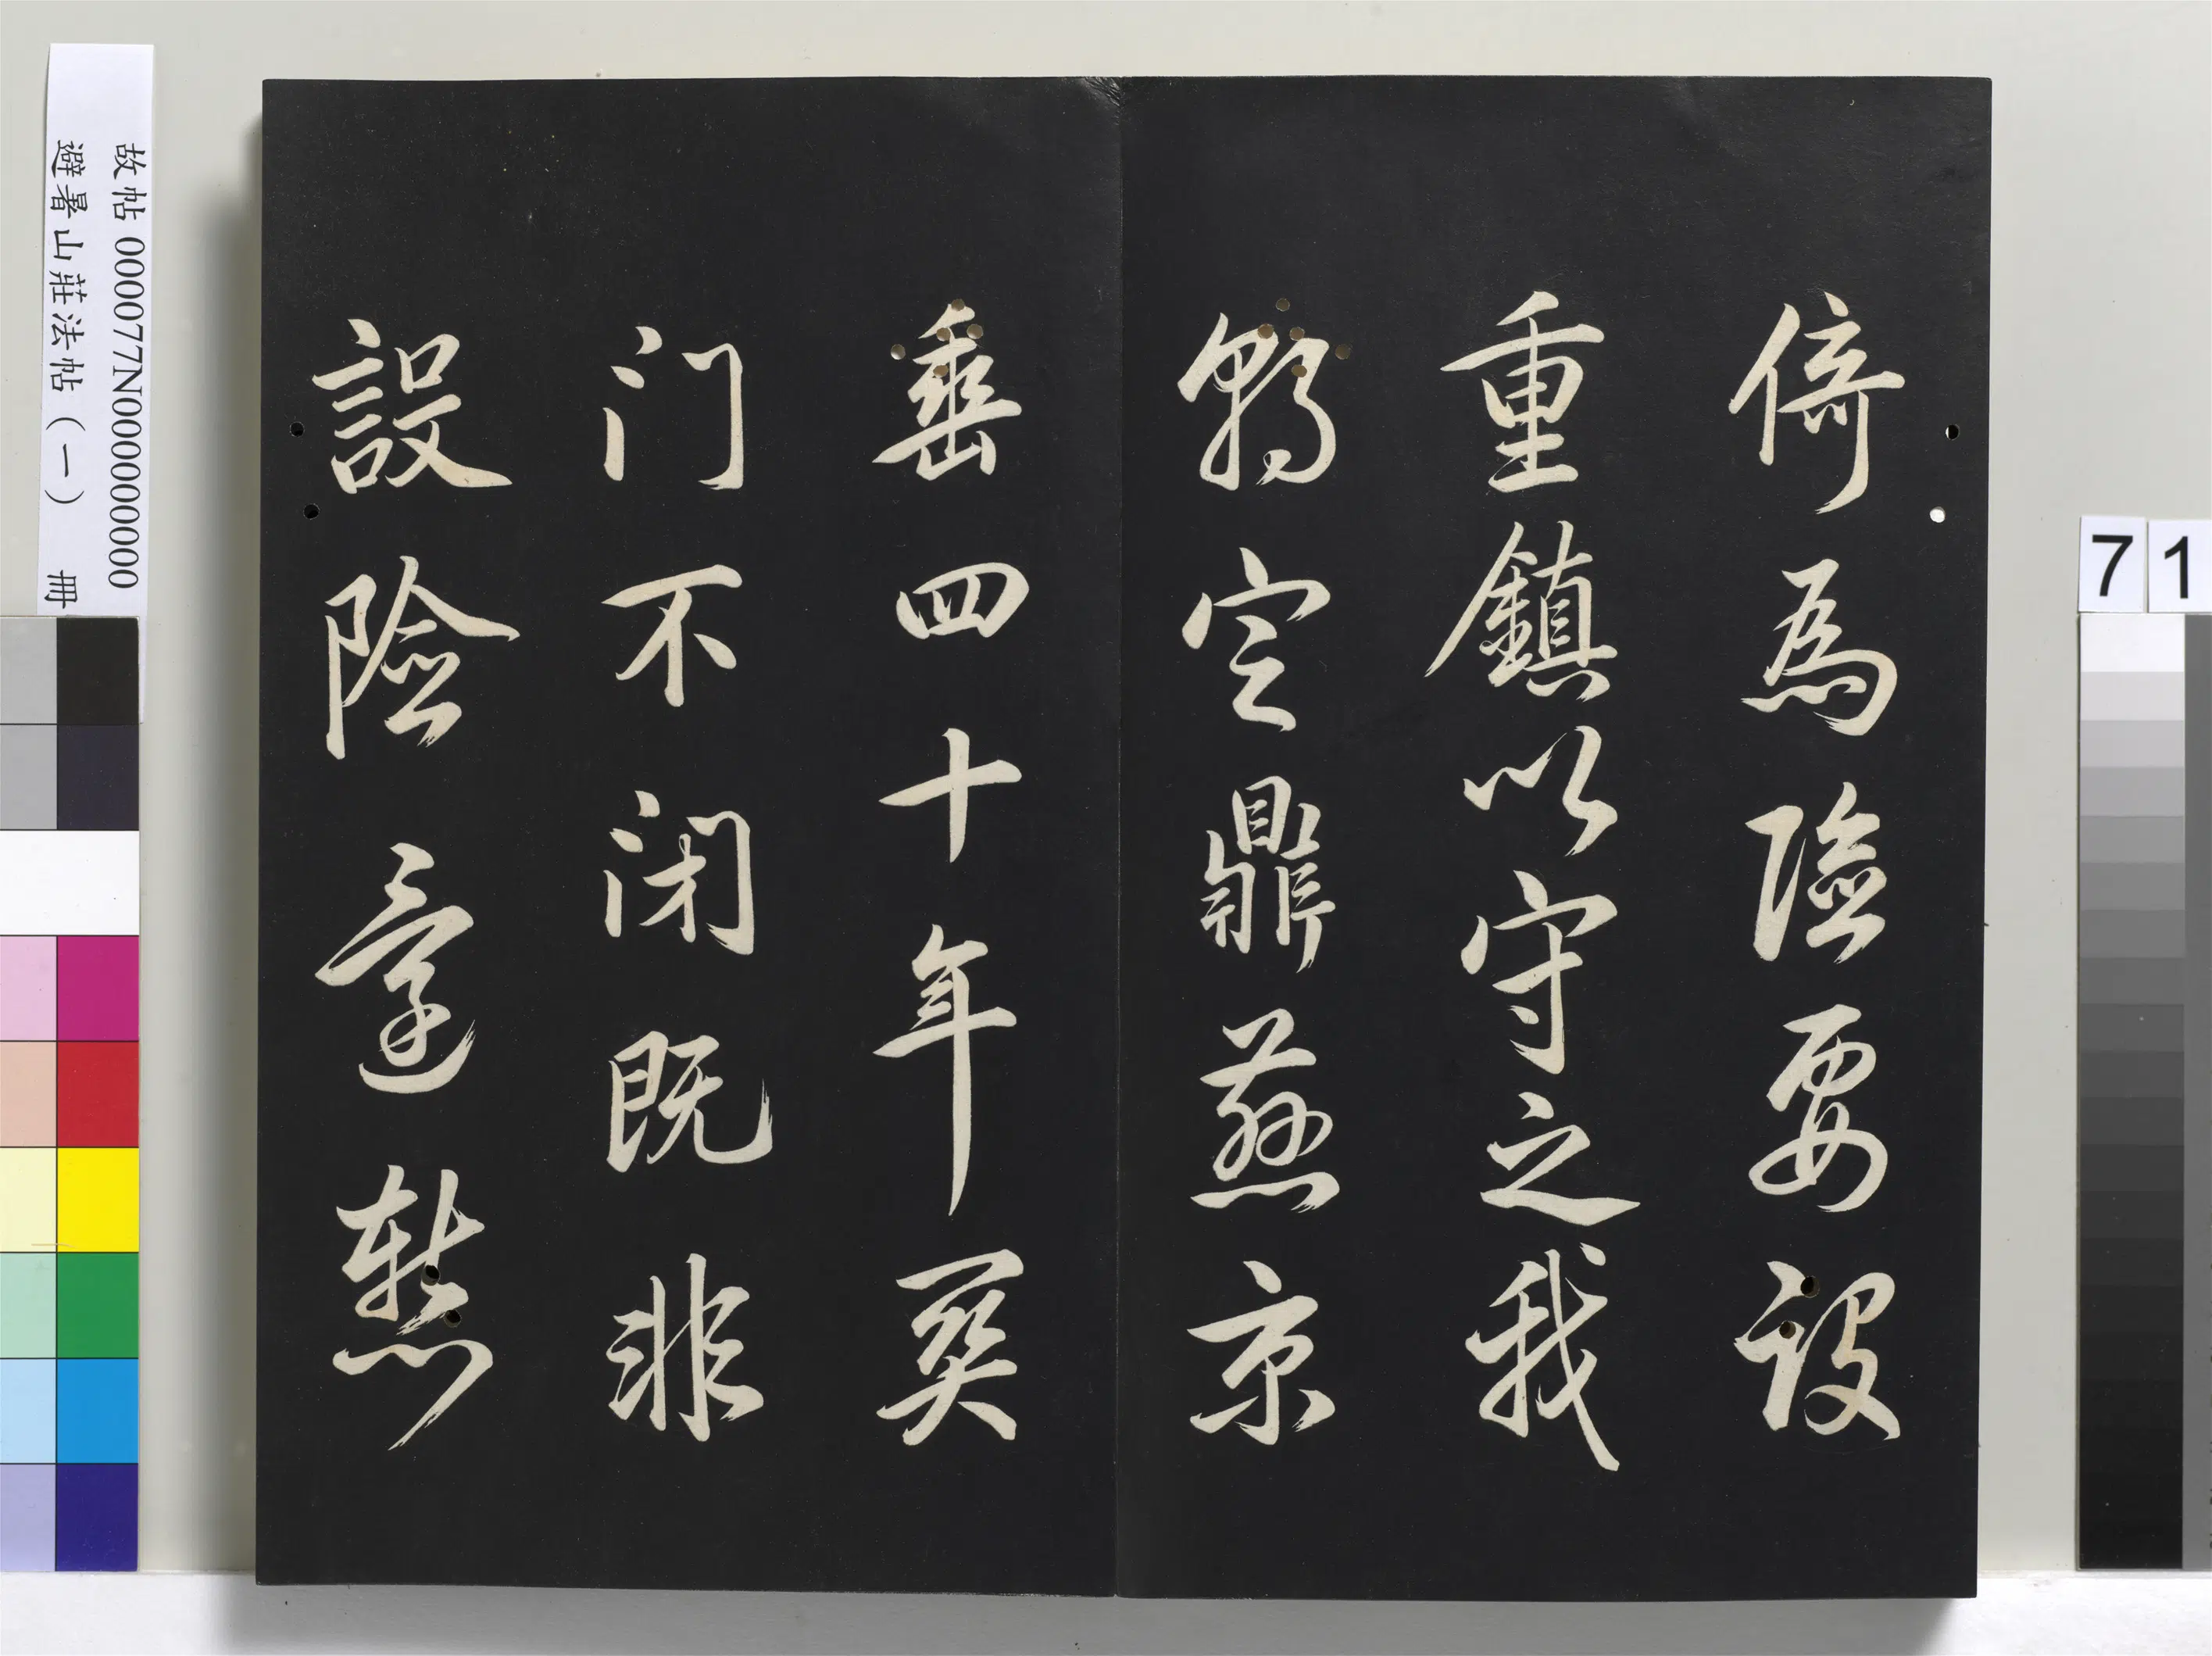 倚為險要設
重鎮以守之我
朝定鼎燕京
垂四十年關
門不閉既非
設險意懃
故帖 000077N000000000
避暑山莊法帖（一） 冊
71